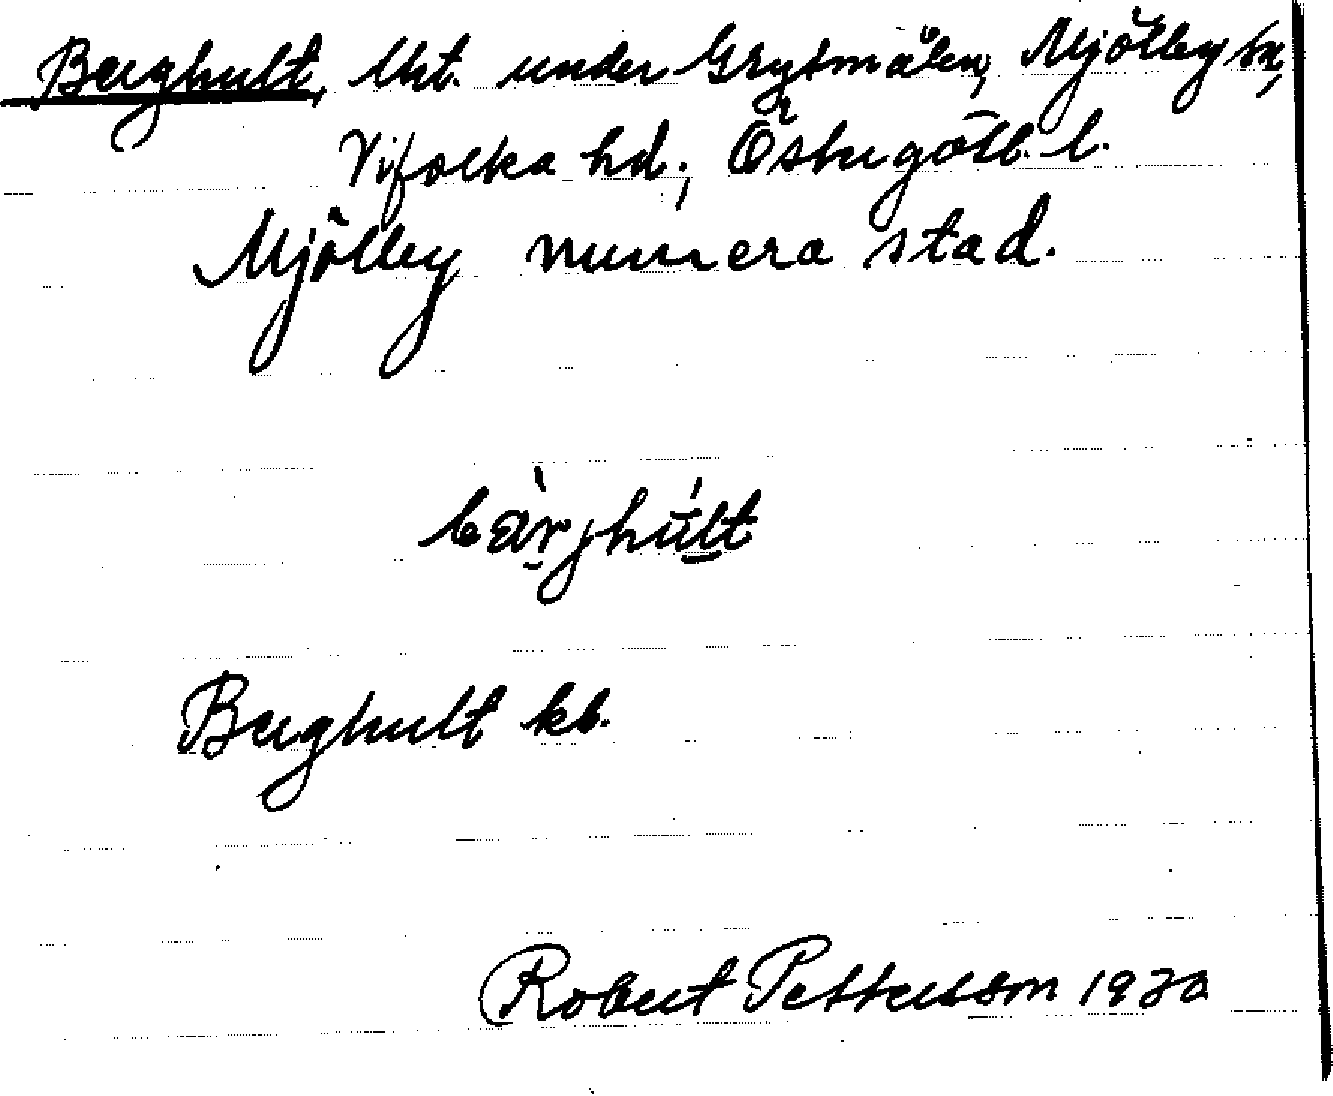 Berghult, lht. under Grytmålen, Mjölby sn,
Vifolka hd; Östergötl. l.
Mjölby numera stad.
bàrjhúlt
Berghult kb.
Robert Pettersson 1920